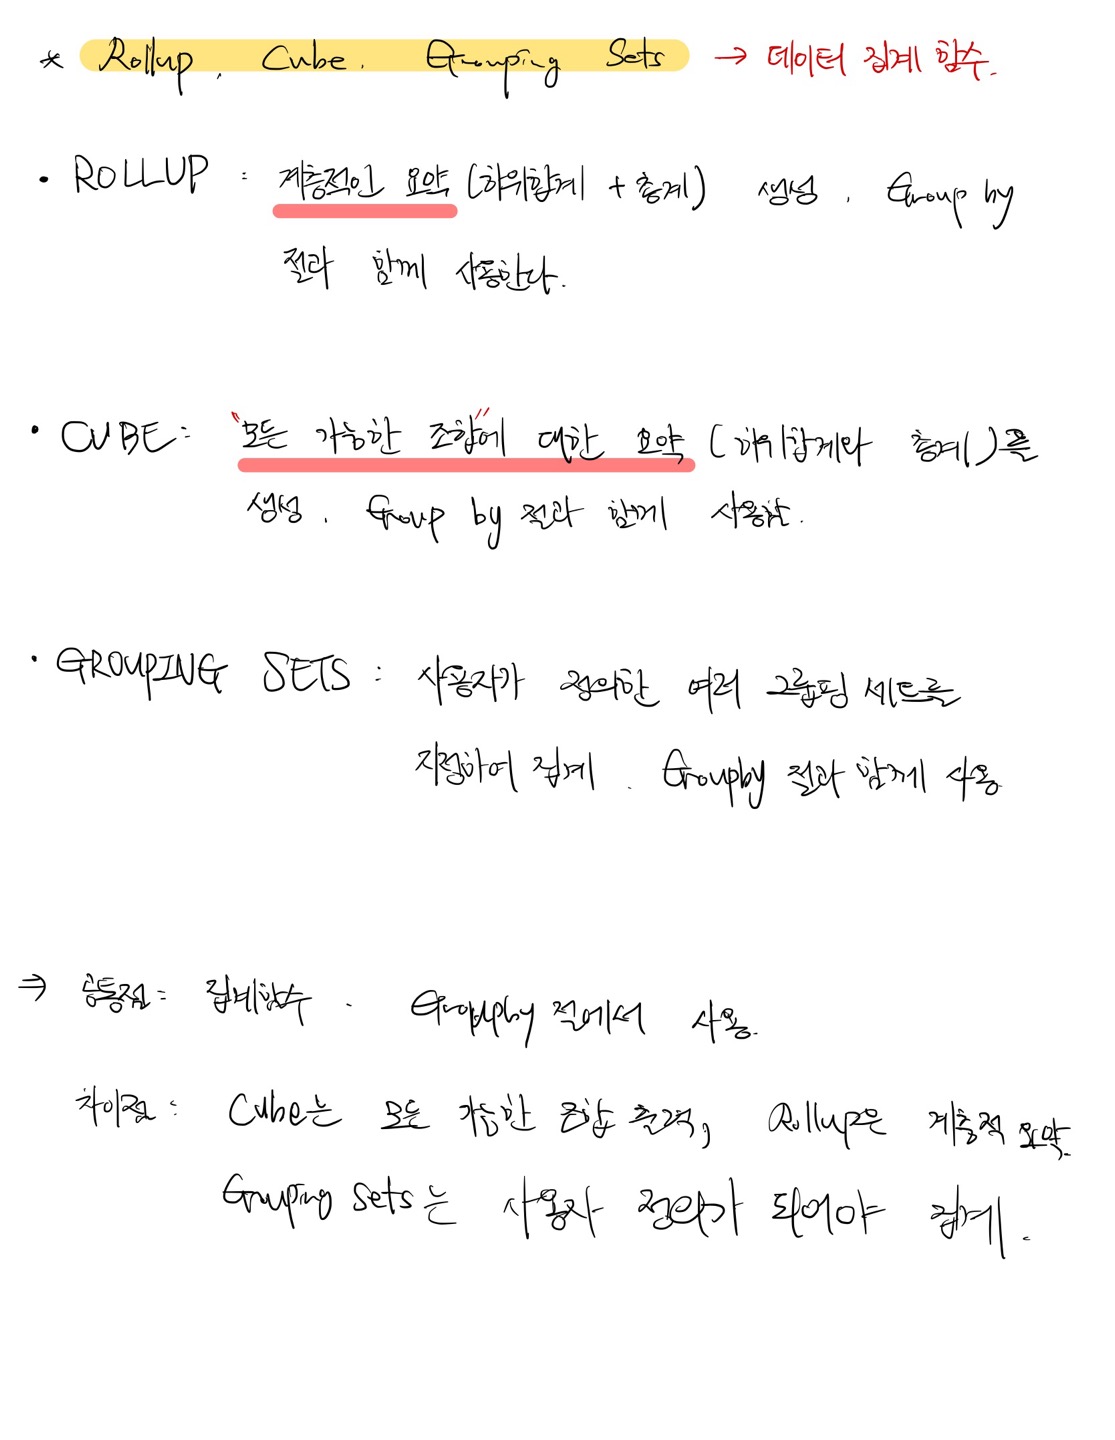 * Rollup, Cube, Grouping Sets → 데이터 집계 함수.
• ROLLUP : 계층적인 요약 (하위합계 + 총계) 생성. Group by
절과 함께 사용한다.
• CUBE : "모든 가능한 조합"에 대한 요약 (하위합계와 총계)를
생성. Group by 절과 함께 사용함.
• GROUPING SETS : 사용자가 정의한 여러 그룹핑 세트를
지정하여 집계. Groupby 절과 함께 사용
⇒ 공통점 : 집계함수. Groupby 절에서 사용.
차이점 : Cube는 모든 가능한 조합 출력, Rollup은 계층적 요약.
Grouping Sets는 사용자 정의가 되어야 집계.